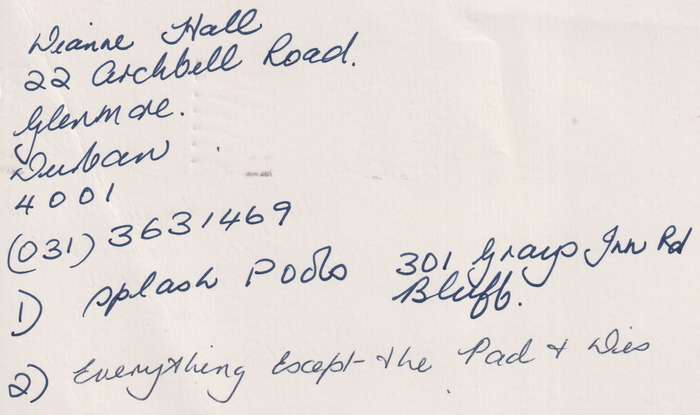 Dianne Hall
22 Archbell Road.
Glenmore.
Durban
4001
(031) 3631469
1) Splash Pools 301 Grays Inn Rd
Bluff.
2) Everything Except the Pad + Dies